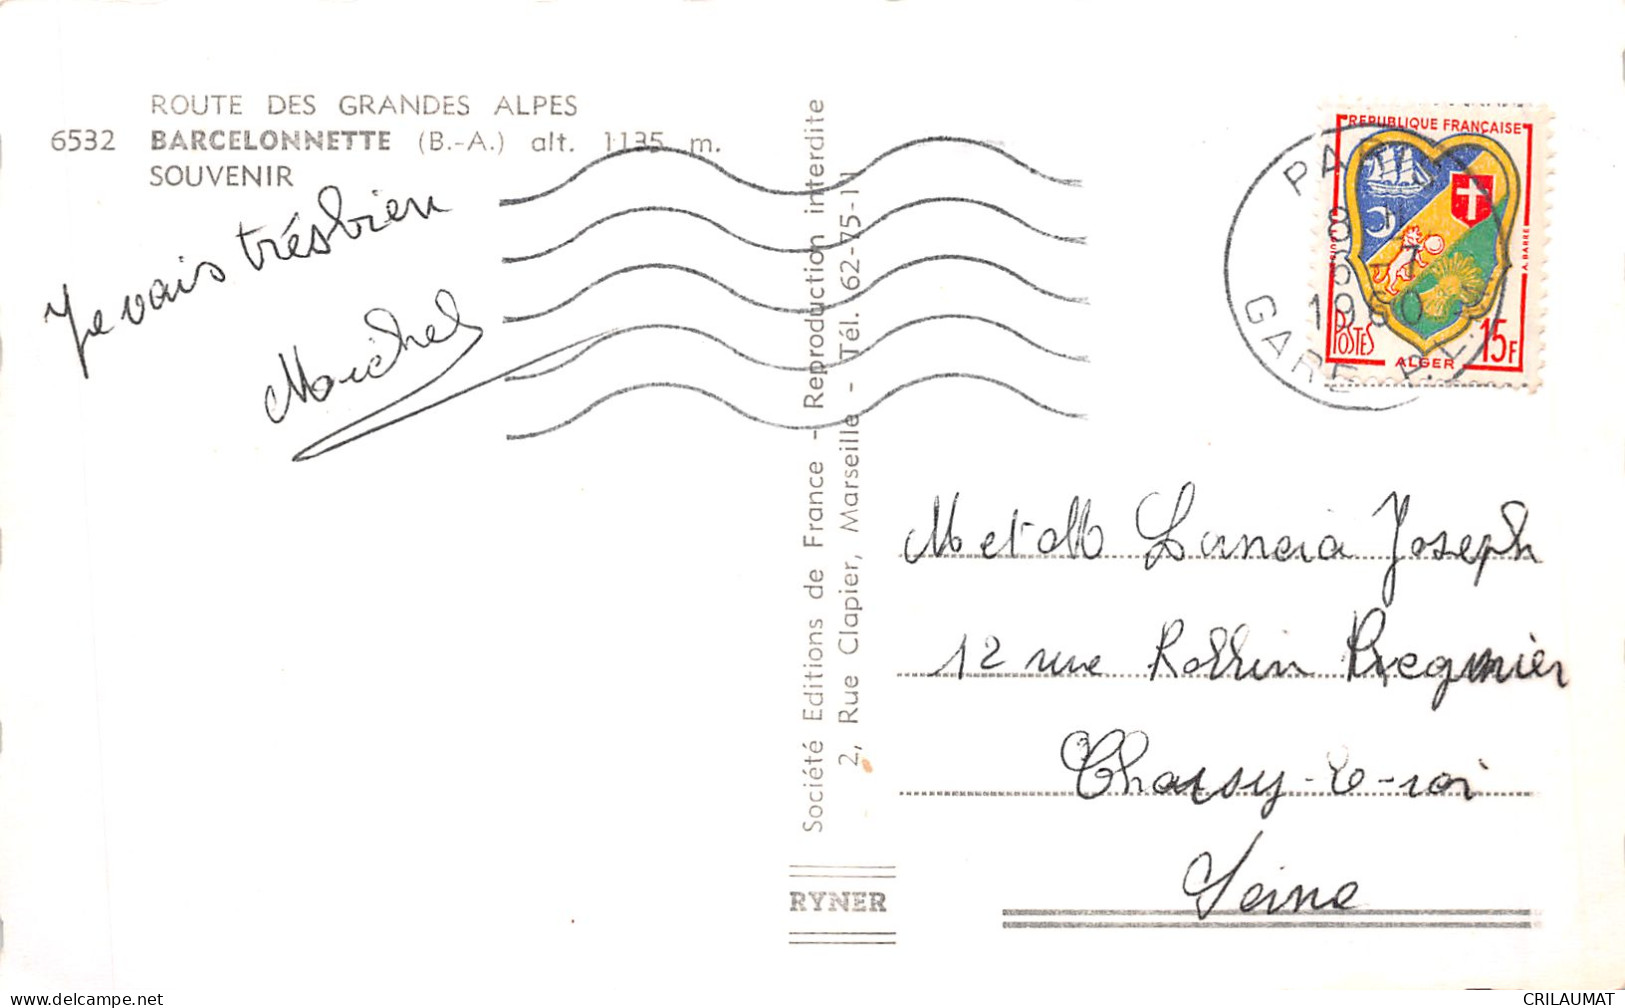 ROUTE DES GRANDES ALPES
6532 BARCELONNETTE (B.-A.) alt. 1135 m.
SOUVENIR
Je vais très bien
Michel
Société Editions de France - Reproduction interdite
2, Rue Clapier, Marseille - Tél. 62-75-11
RYNER
REPUBLIQUE FRANÇAISE
POSTES
ALGER
15F
A. BARRE
PARIS
8 H
1960
GARE P.L.
M et M Lancia Joseph
12 rue Rollin Regnier
Choisy-le-roi
Seine
delcampe.net
CRILAUMAT